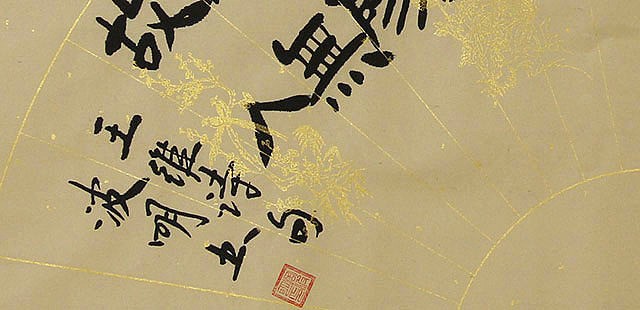 無
故人
王維詩句
波明书